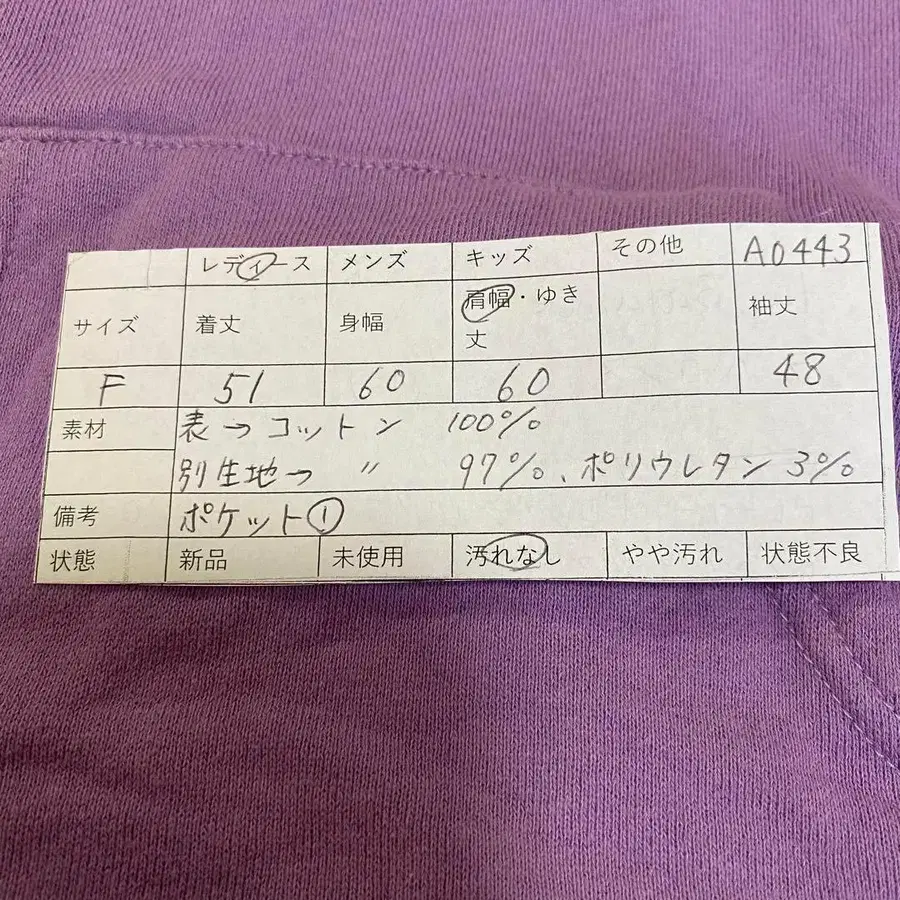 レディース メンズ キッズ その他 A0443
サイズ 着丈 身幅 肩幅・ゆき丈 袖丈
F 51 60 60 48
素材 表→コットン 100%
別生地→ 〃 97%、ポリウレタン 3%
備考 ポケット①
状態 新品 未使用 汚れなし やや汚れ 状態不良